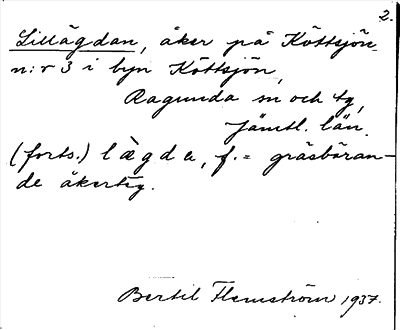 2.
Lillägdan, åker på Köttsjön
n:r 3 i byn Köttsjön,
Ragunda sn och tg,
Jämtl. län.
(forts.) lägda, f. = gräsbäran-
de åkerteg.
Bertil Flemström 1937.